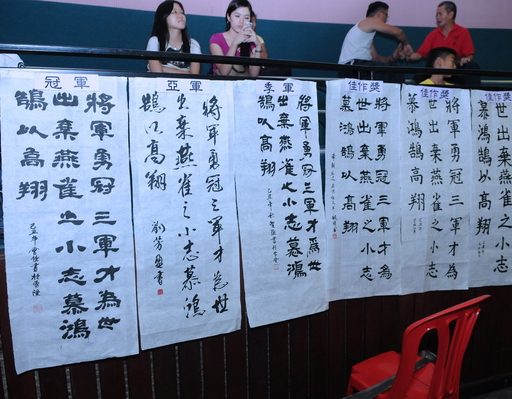 冠軍
將軍勇冠三軍才為世
出棄燕雀之小志慕鴻
鵠以高翔
亞軍
將軍勇冠三軍才為世
出棄燕雀之小志慕鴻
鵠以高翔
季軍
將軍勇冠三軍才為世
出棄燕雀之小志慕鴻
鵠以高翔
佳作獎
將軍勇冠三軍才為
世出棄燕雀之小志
慕鴻鵠以高翔
佳作獎
將軍勇冠三軍才為
世出棄燕雀之小志
慕鴻鵠以高翔
佳作獎
世出棄燕雀之小志
慕鴻鵠以高翔